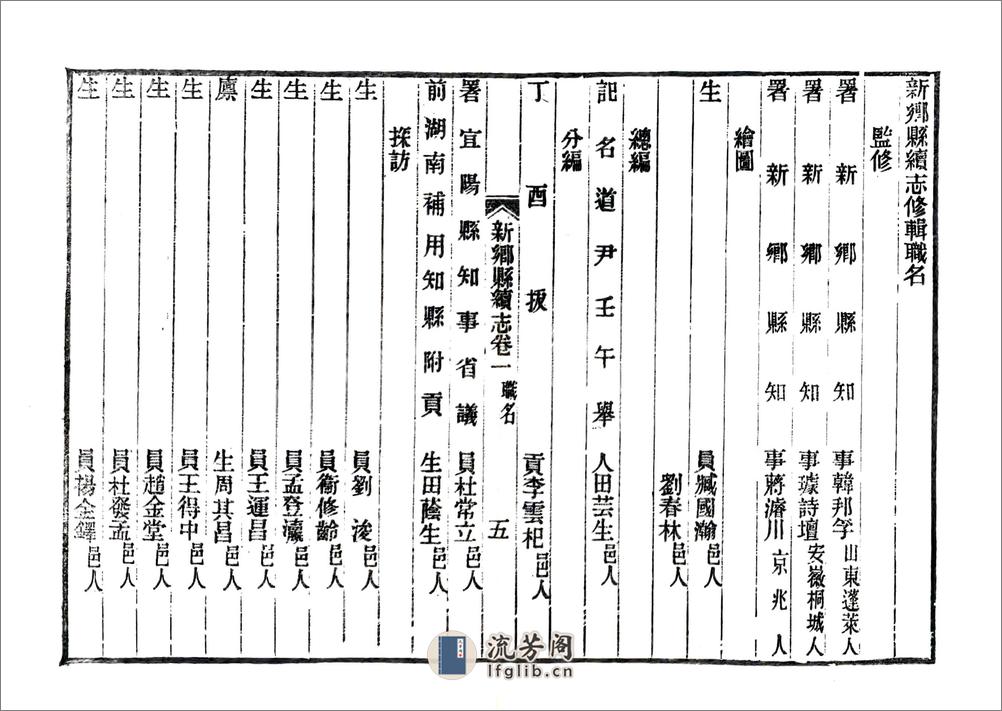 新鄉縣續志修輯職名
監修
署新鄉縣知事韓邦孚山東蓬萊人
署新鄉縣知事璩詩壇安徽桐城人
署新鄉縣知事蔣濬川京兆人
繪圖
生員臧國瀚邑人
劉春林邑人
總編
記名道尹壬午舉人田芸生邑人
分編
丁酉拔貢李雲杞邑人
新鄉縣續志卷一 職名 五
署宜陽縣知事省議員杜常立邑人
前湖南補用知縣附貢生田蔭生邑人
採訪
生員劉浚邑人
生員衞修齡邑人
生員孟登瀛邑人
生員王運昌邑人
廩生周其昌邑人
生員王得中邑人
生員趙金堂邑人
生員杜發孟邑人
生員楊金鐸邑人
流芳阁
lfglib.cn